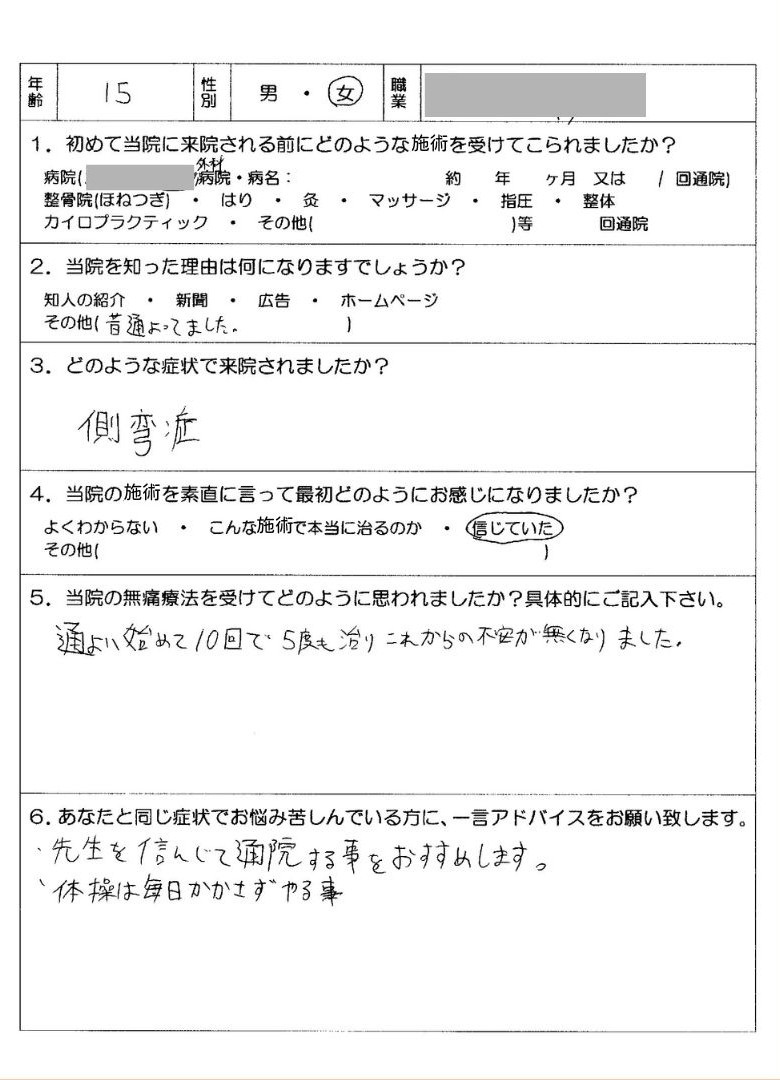 年齢 15 性別 男 ・ 女 職業
1. 初めて当院に来院される前にどのような施術を受けてこられましたか？
病院( 外科 病院・病名： 約 年 ヶ月 又は 1 回通院)
整骨院(ほねつぎ) ・ はり ・ 灸 ・ マッサージ ・ 指圧 ・ 整体
カイロプラクティック ・ その他( )等 回通院
2. 当院を知った理由は何になりますでしょうか？
知人の紹介 ・ 新聞 ・ 広告 ・ ホームページ
その他( 昔通よってました。 )
3. どのような症状で来院されましたか？
側弯症
4. 当院の施術を素直に言って最初どのようにお感じになりましたか？
よくわからない ・ こんな施術で本当に治るのか ・ 信じていた
その他( )
5. 当院の無痛療法を受けてどのように思われましたか？具体的にご記入下さい。
通よい始めて10回で5度も治りこれからの不安が無くなりました。
6. あなたと同じ症状でお悩み苦しんでいる方に、一言アドバイスをお願い致します。
・先生を信んじて通院する事をおすすめします。
・体操は毎日かかさずやる事